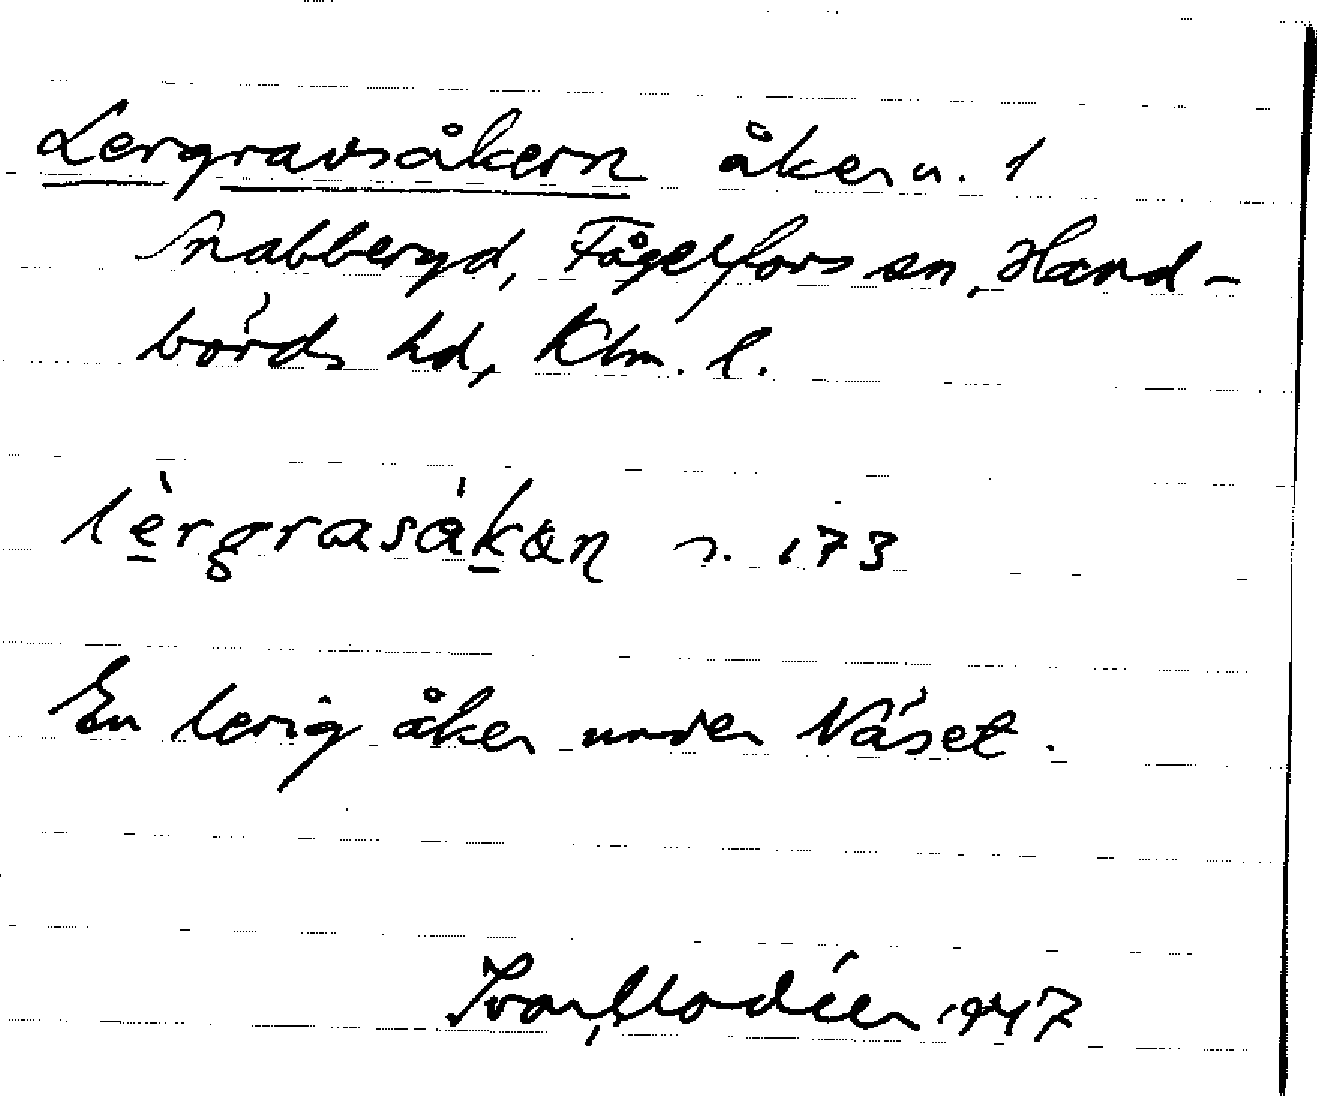 Lergravsåkern åker u. 1
Snabberyd, Fågelfors sn, Hand-
börds hd, Klm. l.
lèrgrasåkan s. 173
En lerig åker under Näset.
Ivar Modéer 1947